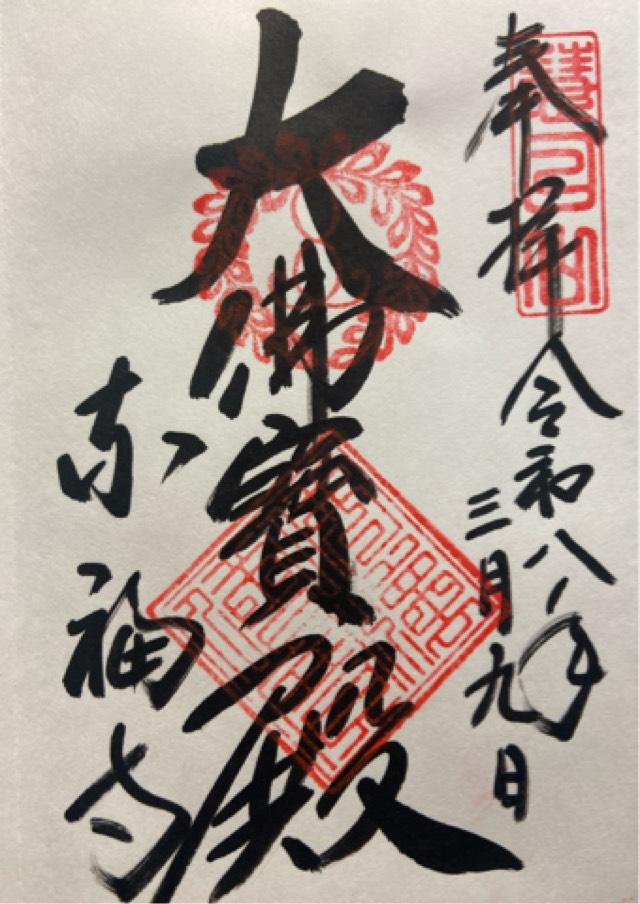 慧日山
奉拝 令和八年
三月九日
大佛寶殿
东福寺